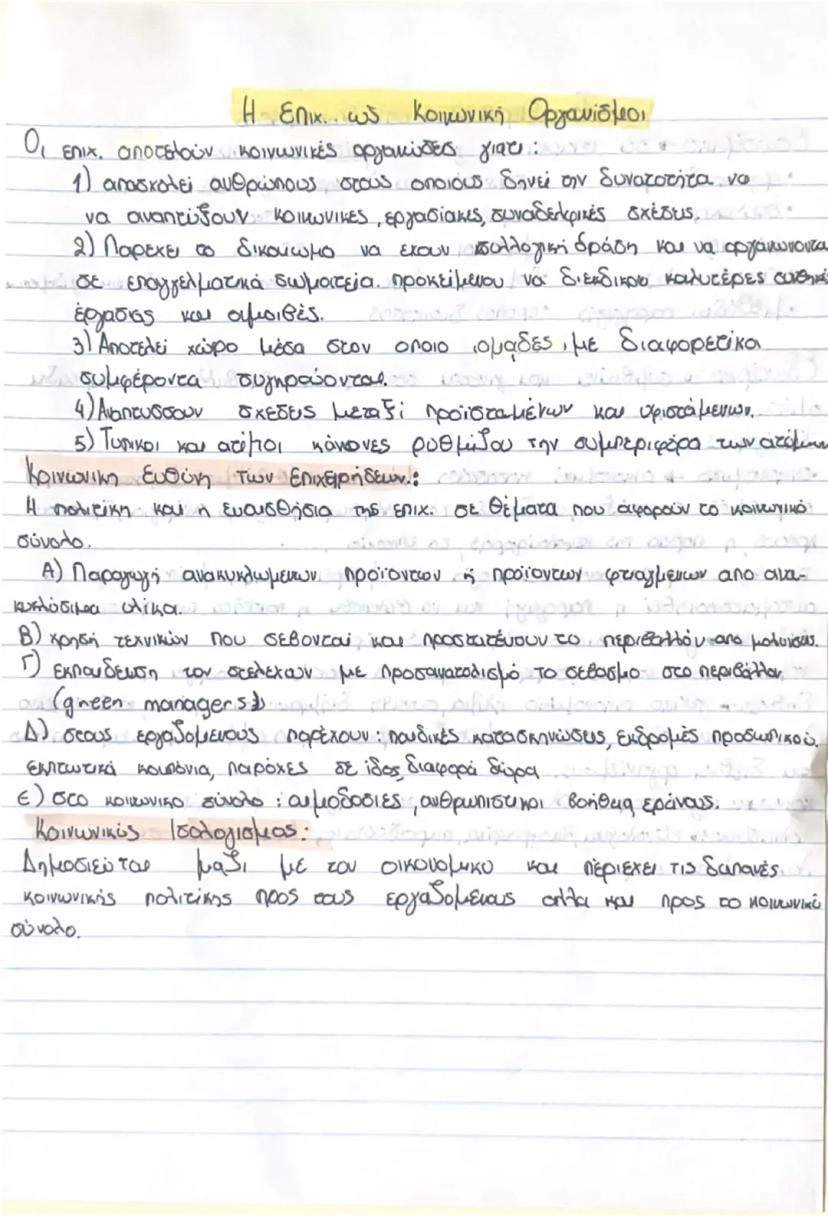 Η Επιχ. ως Κοινωνική Οργανίσμοι
Οι επιχ. αποτελούν κοινωνικές οργανώσεις γιατι:
1) απασχολεί ανθρώπους στους οποίους δηνεί την δυνατοτήτα να
να αναπτύξουν κοινωνικες, εργασίακες, συναδελφρικές σχέσεις.
2) Παρεχει το δικαίωμα να εχουν συλλογική δράση και να οργανωνοντα
σε επαγγελματικά σωματεία. προκείμενου να διεκδικου καλυτέρες συνθηκ
έργασιας και αμοιβές.
3) Αποτελεί χώρο μέσα στον οποιο ομαδες με διαφορετικα
συμφέροντα συγκρούονται.
4) Αναπτυσσουν σχέσεις μεταξί προϊσταμένων και υφισταμενων.
5) Τυπικοι και ατύποι κάνονες ρυθμίζου την συμπεριφορα των ατόμων
Κοινωνικη Ευθύνη των Επιχειρήσεων.:
Η πολιτίκη και η ευαισθήσια της επιχ. σε θέματα που αφορούν το κοινωνικό
σύνολο.
Α) Παραγωγή ανακυκλωμενων προϊοντων ή προϊοντων φτιαγμενων απο ανα-
κυκλώσιμα υλικα.
Β) χρησή τεχνικών που σεβονται και προστατέυουν το περιβαλλόν απο μολυνσεις.
Γ) εκπαιδευση τον στελεχων με προσανατολισμό το σεβασμο στο περιβάλλον
(green managers)
Δ) στους εργαζομενους παρέχουν: παιδικές κατασκηνώσεις, εκδρομές προσωπικού,
εκπτωτικά κουπόνια, παρόχες σε ιδος διαφορά δώρα
Ε) στο κοινωνικο σύνολο: αιμοδοσιες, ανθρωπιστικοι βοήθεια, εράνους.
Κοινωνικός Ισολογισμος:
Δημοσιεύται μαζι με τον οικονομικο και περιεχει τις δαπανές
κοινωνικής πολιτίκης προς τους εργαζομενους αλλα και προς το κοινωνικό
σύνολο.